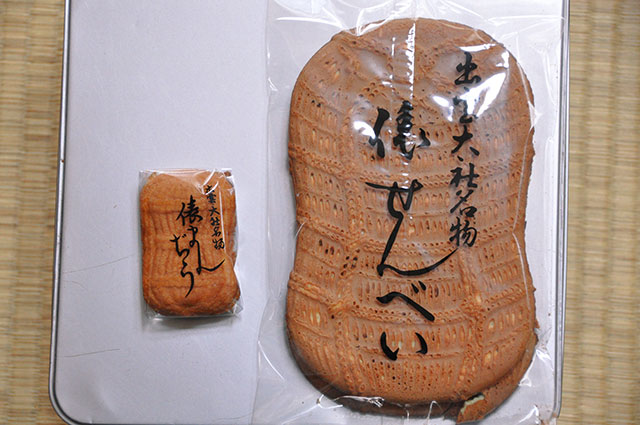 出雲大社名物
俵まんぢう
出雲大社名物
俵せんべい